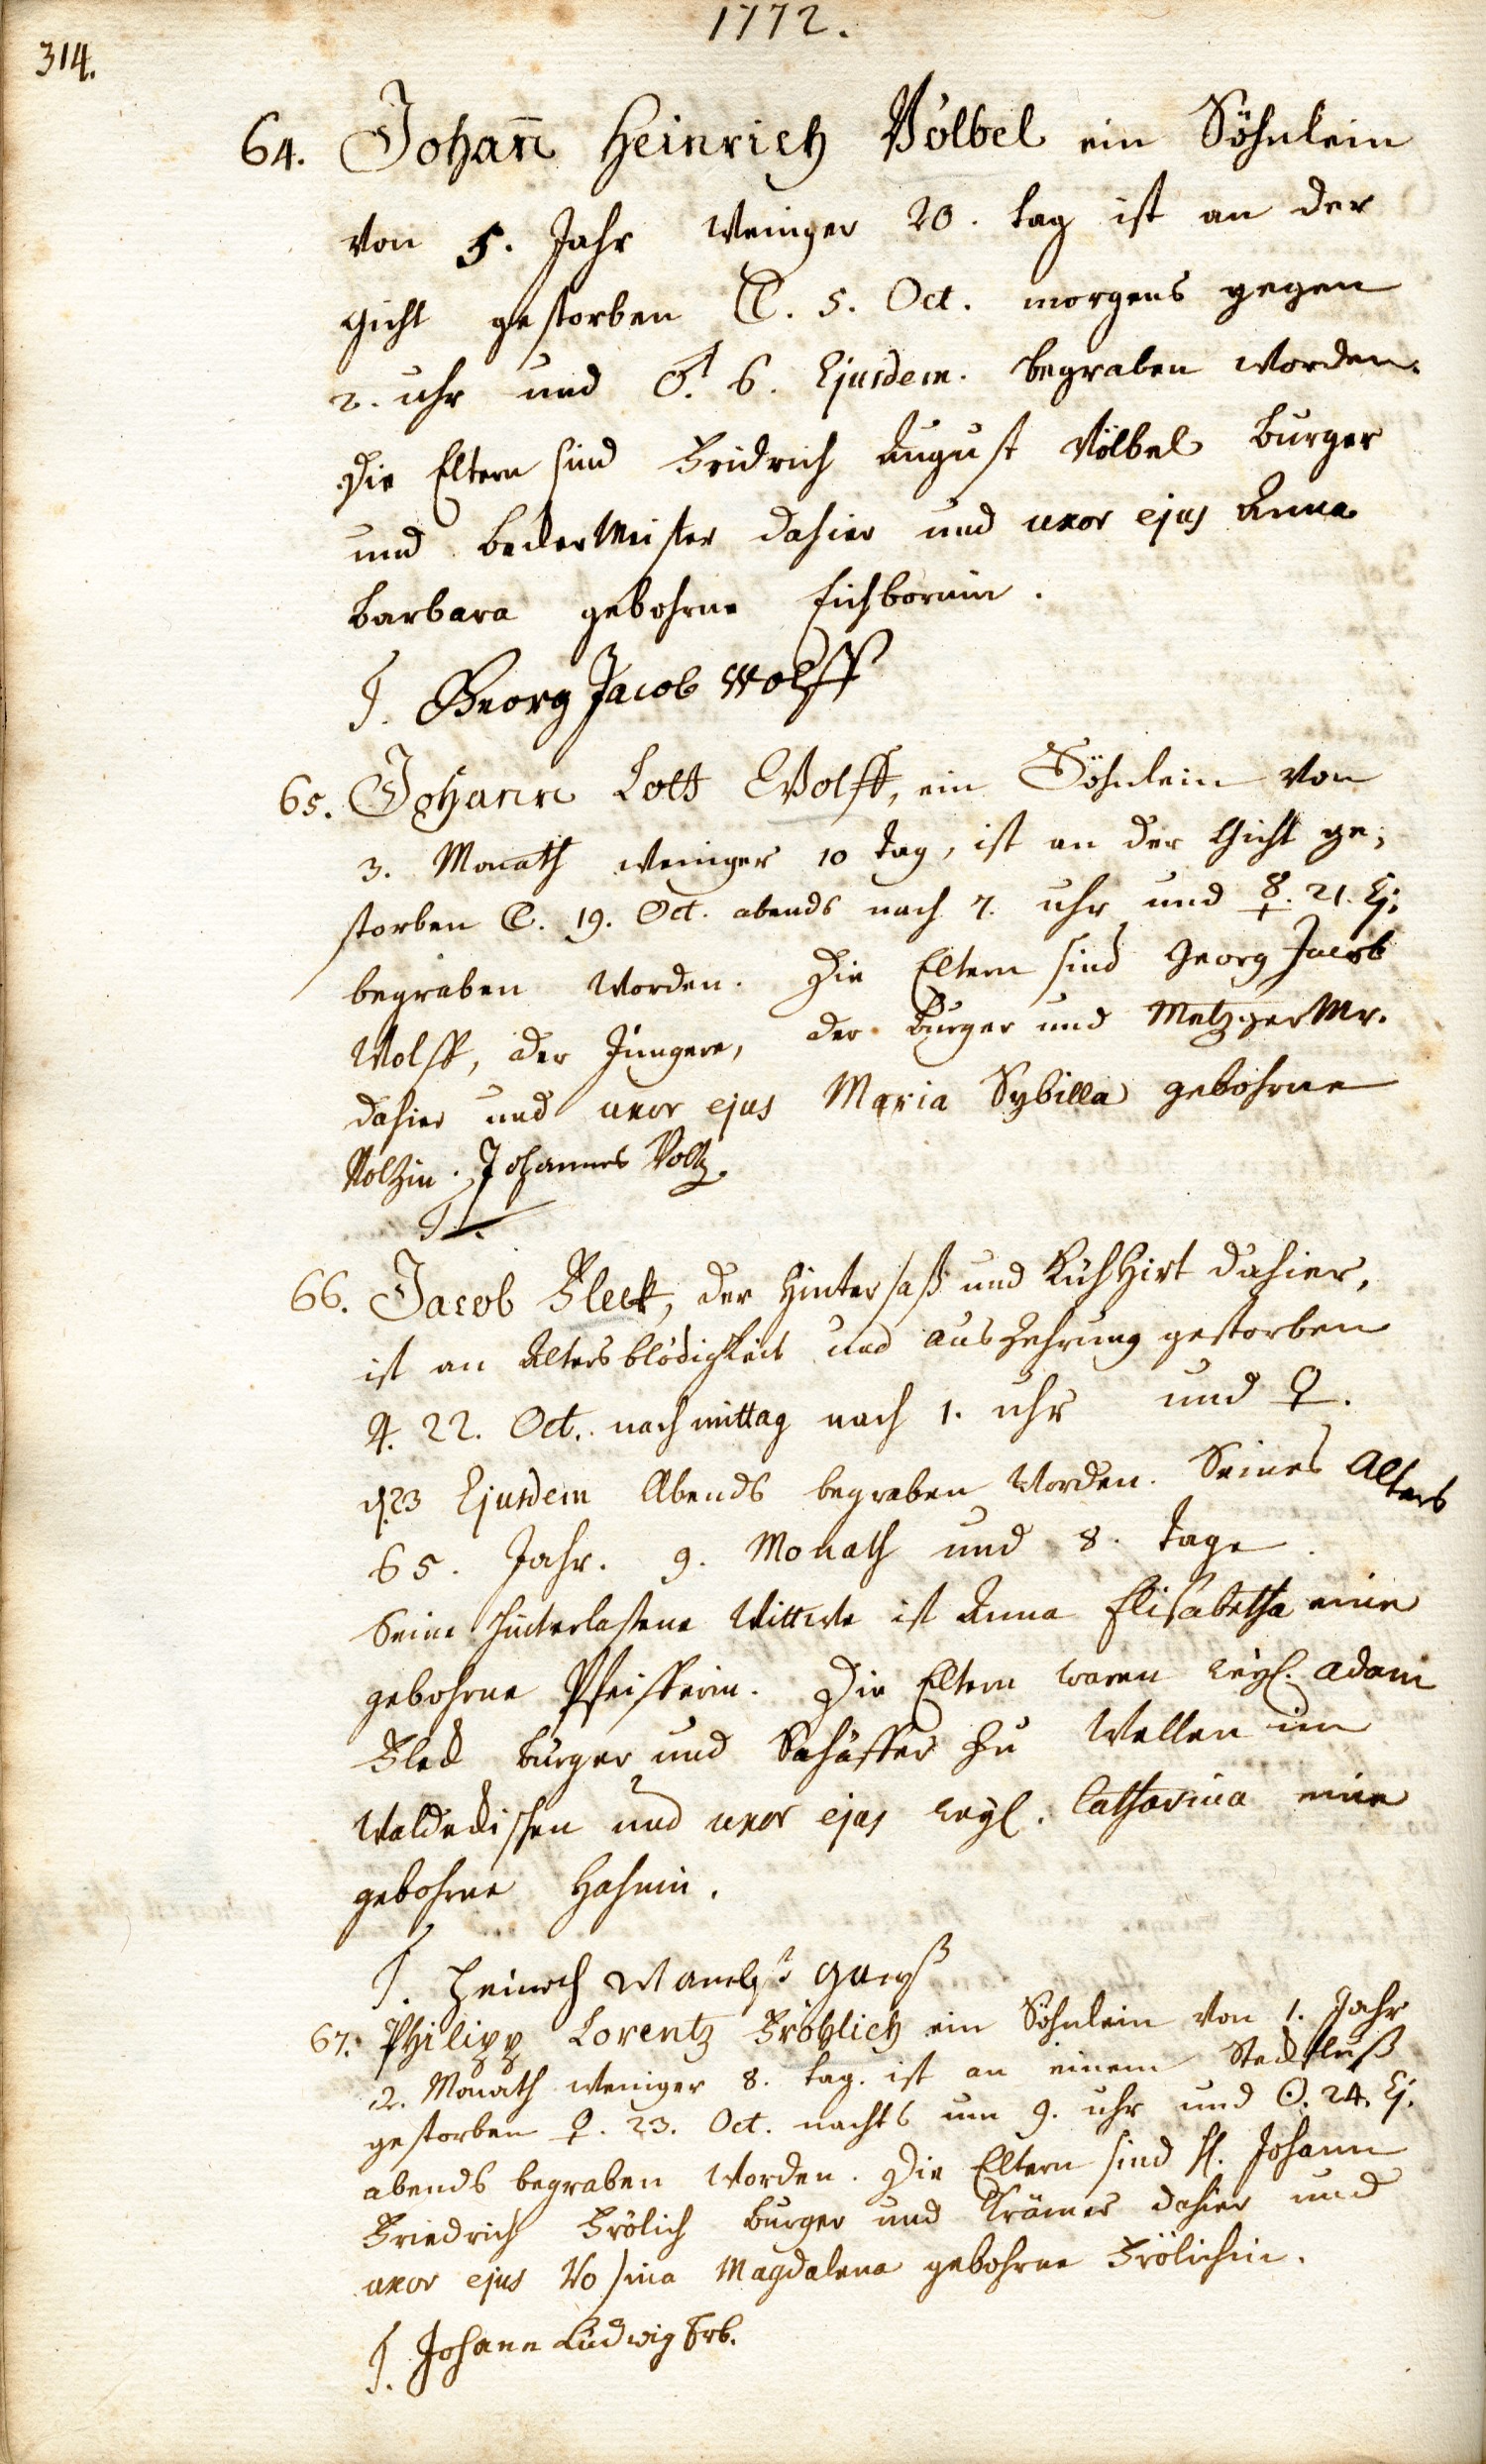 1772.
314.
64. Johan̄ Heinrich Völbel ein Söhnlein
von 5. Jahr weniger 20. tag ist an der
Gicht gestorben ☾. 5. Oct. morgens gegen
2. uhr und ♂. 6. Ejusdem. begraben worden.
Die Eltern sind Fridrich August Völbel burger
und beckerMeister dahier und uxor ejus Anna
barbara gebohrne Eichbornin.
T. Georg Jacob Wolff
65. Johann Lott Wolff, ein Söhnlein von
3. Monath weniger 10 tag, ist an der Gicht ge-
storben ☾. 19. Oct. abends nach 7. uhr und ☿. 21. Ej.
begraben worden. Die Eltern sind Georg Jacob
Wolff, der Jüngere, der burger und MetzgerMr.
dahier und uxor ejus Maria Sybilla gebohrne
Volzin. Johannes Voltz.
T.
66. Jacob Fleck, der Hintersaß und Kuhhirt dahier,
ist an Altersblödigkeit und auszehrung gestorben
♃. 22. Oct. nachmittag nach 1. uhr und ♀.
d. 23 Ejusdem Abends begraben worden. Seines Alters
65. Jahr. 9. Monath und 8. tage.
Seine hinterlaßene Wittwe ist Anna Elisabetha eine
gebohrne Pfeifferin. Die Eltern waren weyl. Adam
Fleck burger und Schäffer zu Wellen im
Waldeckischen und uxor ejus weyl. Catharina eine
gebohrne Hahnin.
T. Heinrich
67. Philipp Lorentz Fröhlich ein Söhnlein von 1. Jahr
2. Monath weniger 8. tag. ist an einem Steckfluß
gestorben ♀. 23. Oct. nachts um 9. uhr und ☉. 24. Ej.
abends begraben worden. Die Eltern sind H. Johann
Friedrich Frölich burger und Krämer dahier und
uxor ejus Rosina Magdalena gebohrne Frölichin.
T. Johann Ludwig Erb.